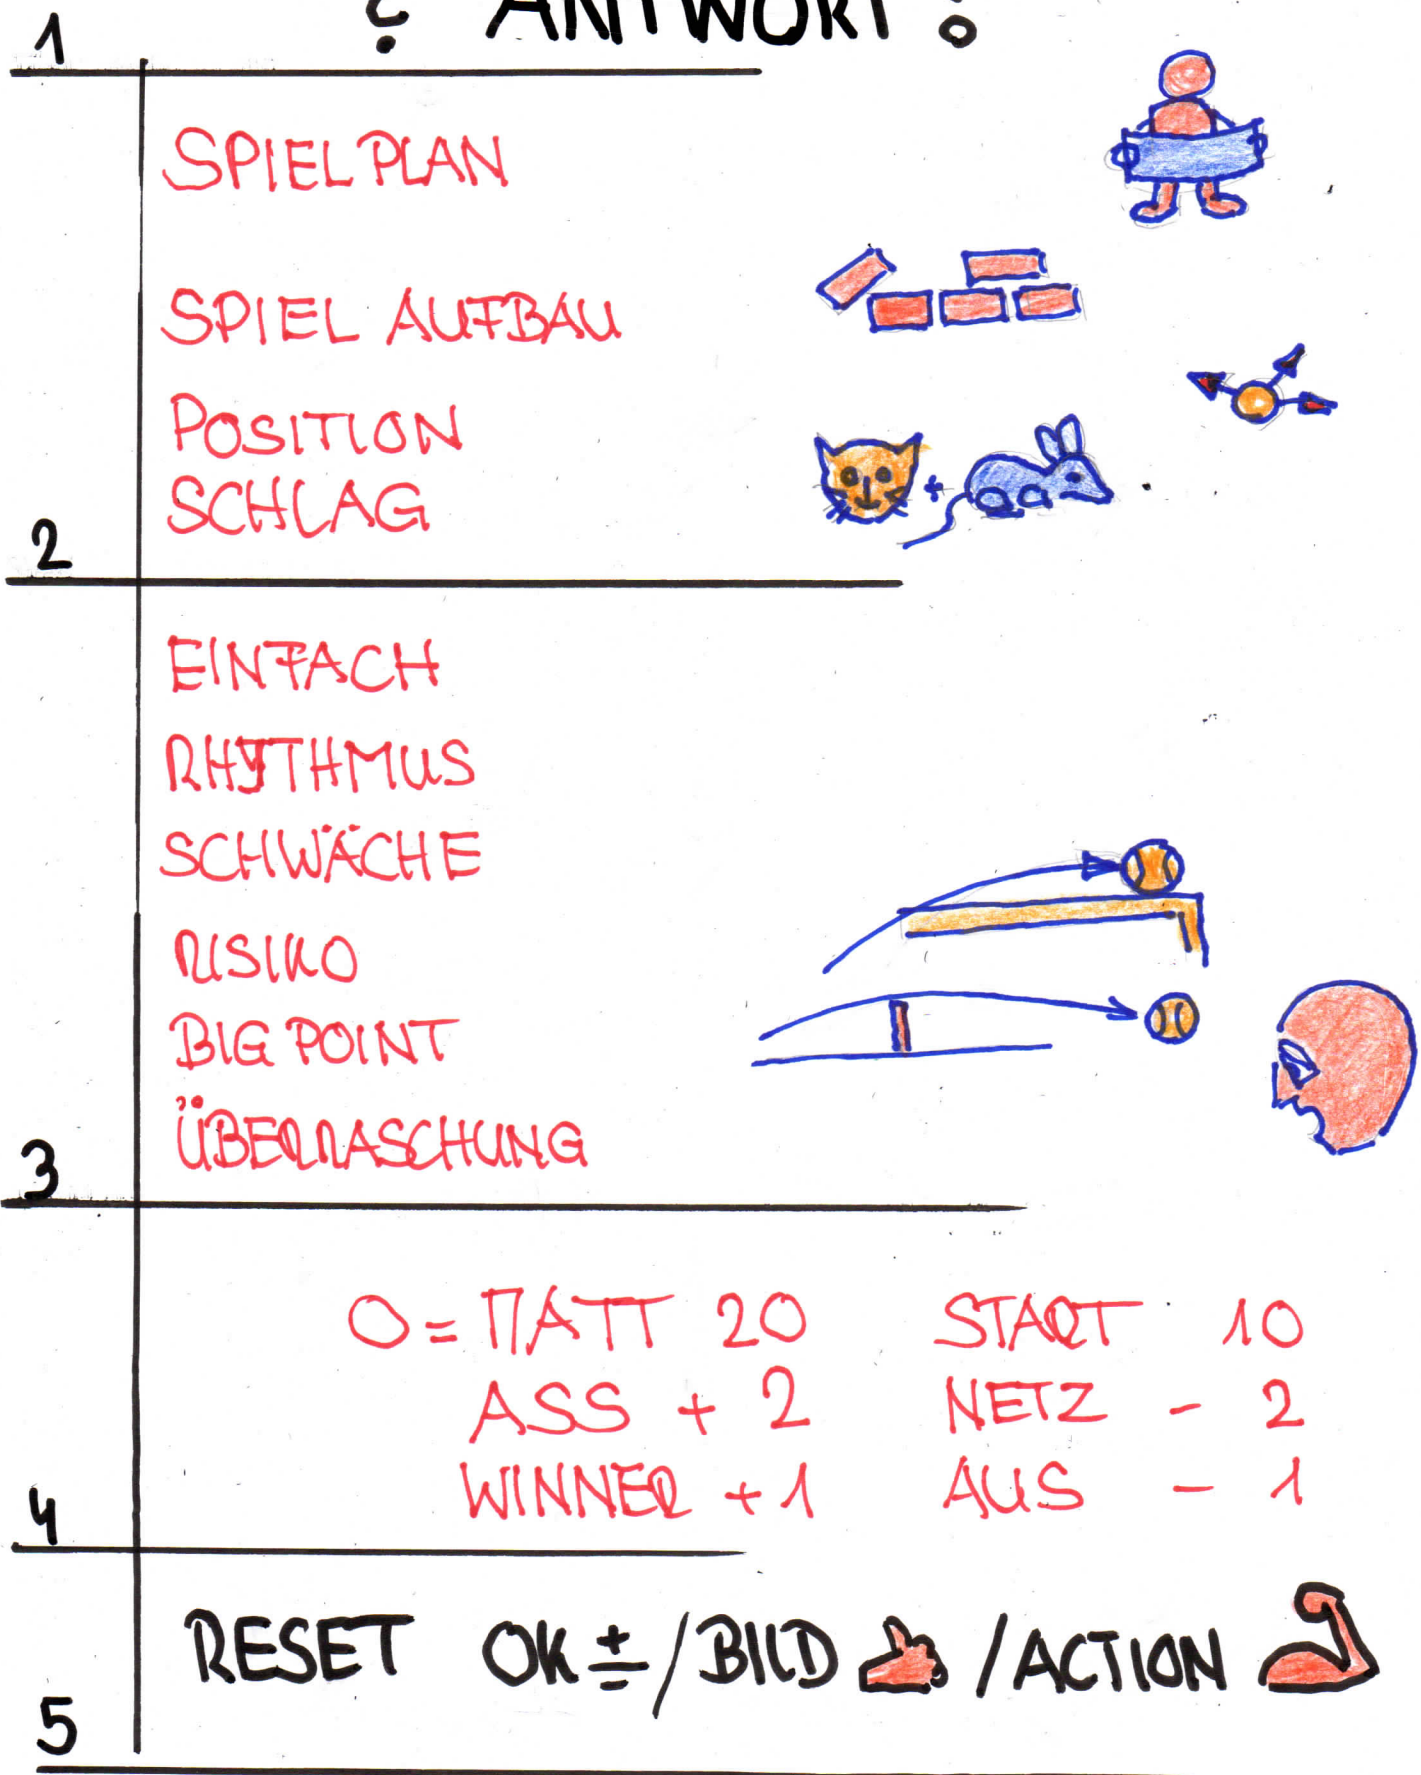 1 ? ANTWORT !
SPIELPLAN
SPIEL AUFBAU
POSITION
SCHLAG
2
EINFACH
RHYTHMUS
SCHWÄCHE
RISIKO
BIG POINT
ÜBERRASCHUNG
3
0 = MATT 20 START 10
ASS + 2 NETZ - 2
WINNER + 1 AUS - 1
4
RESET OK ± / BILD / ACTION
5